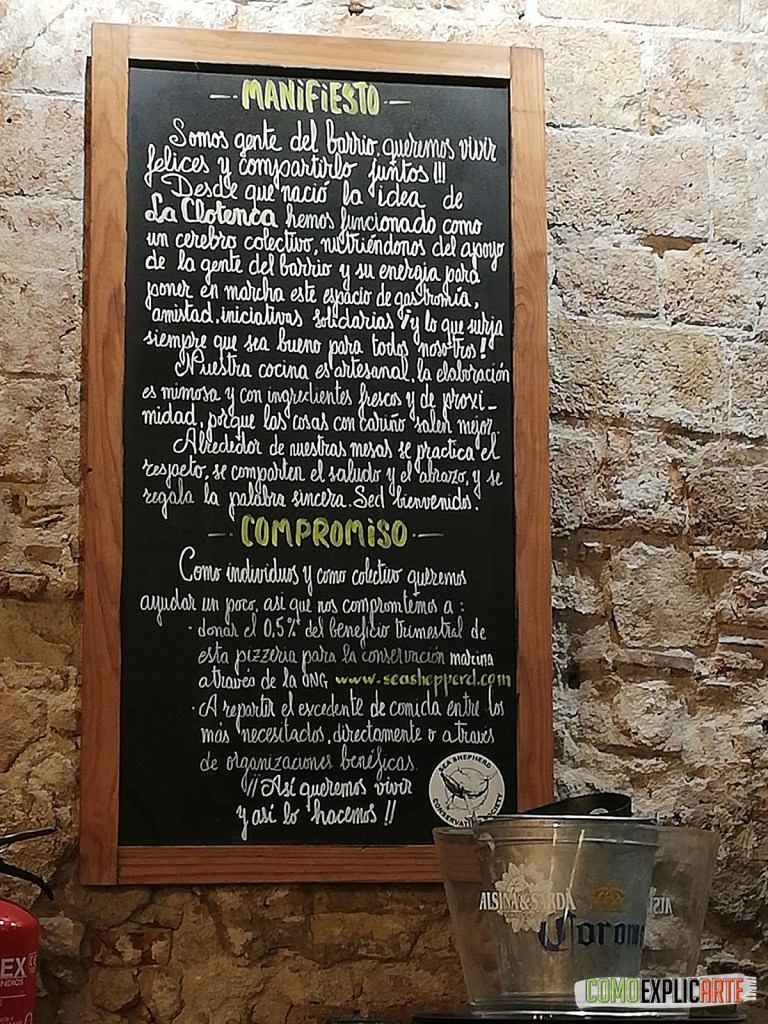 MANIFIESTO
Somos gente del barrio, queremos vivir
felices y compartirlo juntos!!!
Desde que nació la idea de
La Clotenca hemos funcionado como
un cerebro colectivo, nutriéndonos del apoyo
de la gente del barrio y su energía para
poner en marcha este espacio de gastromía,
amistad, iniciativas solidarias y lo que surja
siempre que sea bueno para todos nosotros!
Nuestra cocina es artesanal, la elaboración
es mimosa y con ingredientes frescos y de proxi-
midad, porque las cosas con cariño salen mejor.
Alrededor de nuestras mesas se practica el
respeto, se comparten el saludo y el abrazo, y se
regala la palabra sincera. Sed bienvenidos.
COMPROMISO
Como individuos y como colectivo queremos
ayudar un poco, así que nos compromtemos a:
· donar el 0.5% del beneficio trimestral de
esta pizzeria para la conservación marina
a través de la ONG www.seashepperd.com
· A repartir el excedente de comida entre los
más necesitados, directamente o a través
de organizaciones benéficas.
¡¡Así queremos vivir
y así lo hacemos!!
SEA SHEPHERD
CONSERVATION SOCIETY
ALSINA & SARDÁ
Corona
ALSI
EX
COMOEXPLICARTE